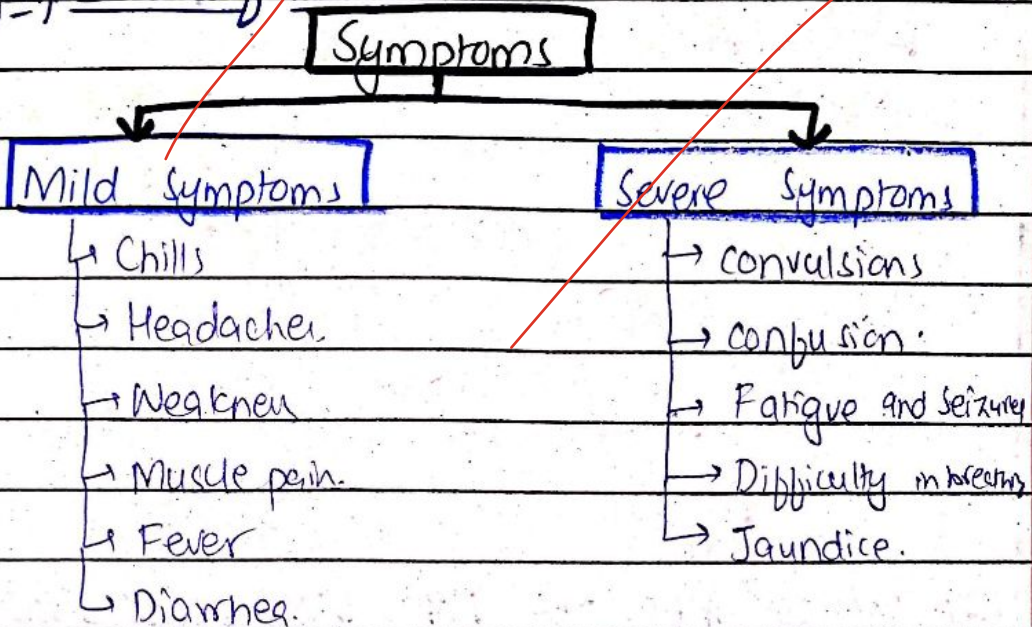 Symptoms
Mild Symptoms
Severe Symptoms
Chills
Headaches.
Weakness
Muscle pain.
Fever
Diarrhea.
convulsions
confusion.
Fatigue and Seizures
Difficulty in breathing
Jaundice.